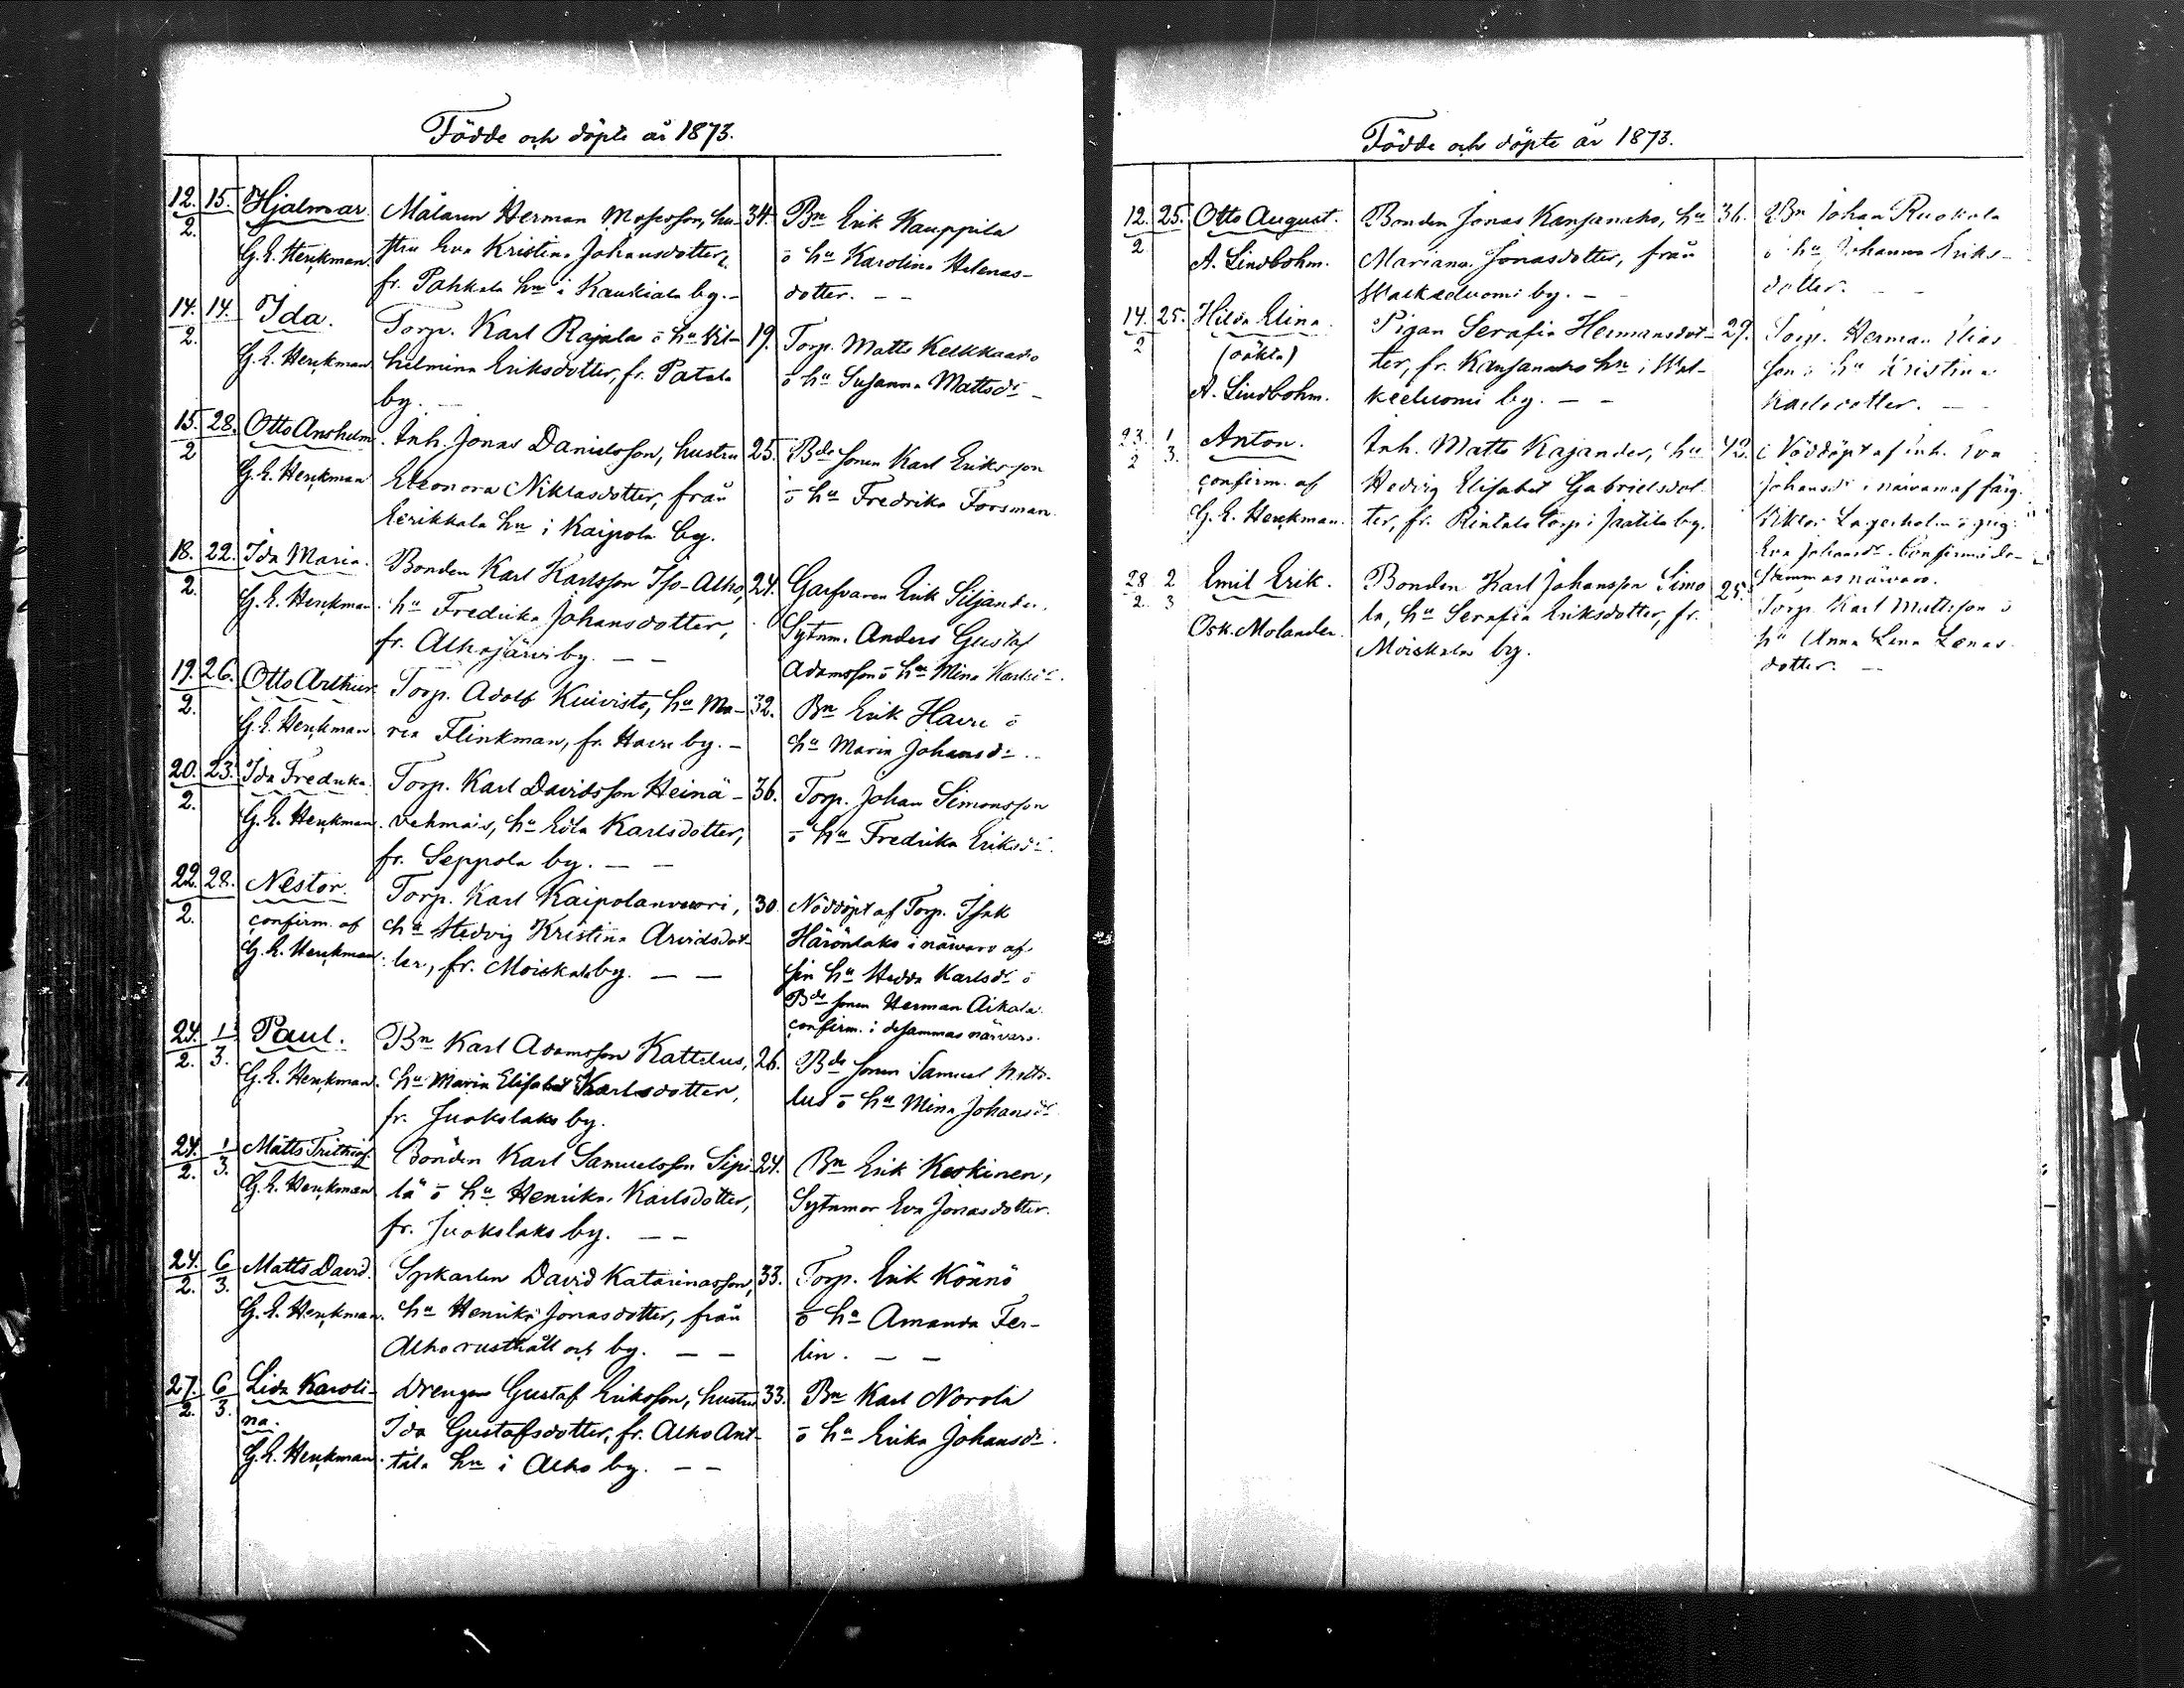 Födde och döpte år 1873.
12. 15. Hjalmar. Målaren Herman Mosesson, hu- 34. Bn Erik Kauppila
2. G. E. Henkman. stru Eva Kristina Johansdotter, ō hu Karolina Helenas-
fr. Pahkala hn i Kaukiala by. – dotter. – –
14. 14. Ida. Torp. Karl Rajala ō hu Vil- 19. Torp. Matts
2. G. E. Henkman helmina Eriksdotter, fr. Patala ō hu Susanna Mattsdr –
by. –
15. 28. Otto Anshelm. Inh. Jonas Danielsson, hustru 25. Bde sonen Karl Eriksson
2 G. E. Henkman Eleonora Niklasdotter, från ō hu Fredrika Forsman.
Eerikkala hn i Kaipola by.
18. 22. Ida Maria. Bonden Karl Karlsson Iso-Alho, 24. Garfvaren Erik Siljander,
2. G. E. Henkman. hu Fredrika Johansdotter, Sytnm. Anders Gustaf
fr. Alhojärvi by. – – Adamsson ō hu Mina Karlsdr.
19. 26. Otto Arthur. Torp. Adolf Kuivisto, hu Ma- 32. Bn Erik Havu ō
2. G. E. Henkman ria Flinkman, fr. by. – hu Maria Johansdr.
20. 23. Ida Fredrika. Torp. Karl Davidsson Heinä- 36. Torp. Johan Simonsson
2. G. E. Henkman. vehmais, hu Eva Karlsdotter, ō hu Fredrika Eriksdr.
fr. Seppola by. – –
22. 28. Nestor. Torp. Karl Kaipolanvuori, 30. Nöddöpt af Torp. Isak
2. confirm. af hu Hedvig Kristina Arvidsdot- i närvaro af
G. E. Henkman. ter, fr. Moiskala by. – – sin hu Hedda Karlsdr ō
Bde sonen Herman Aikala.
confirm. i desammas närvaro.
24. 1 Paul. Bn Karl Adamsson Kattelus, 26. Bde sonen Samuel
2. 3. G. E. Henkman. hu Maria Elisabet Karlsdotter, lus ō hu Mina Johansdr
fr. Juokslaks by.
24. 1 Matts Frithiof. Bonden Karl Samuelsson Sipi- 24. Bn Erik Keskinen,
2. 3. G. E. Henkman lä ō hu Henrika Karlsdotter, Sytnmor Eva Jonasdotter.
fr. Juokslaks by. – –
24. 6 Matts David. Spkarlen David Katarinasson, 33. Torp. Erik Könnö
2. 3. G. E. Henkman. hu Henrika Jonasdotter, från ō hu Amanda Fer-
Alho rusthåll och by. – – lin. – –
27. 6 Lida Karoli- Drengen Gustaf Eriksson, hustru 33. Bn Karl Norola
2. 3. na. Ida Gustafsdotter, fr. Alho Ant- ō hu Erika Johansdr.
G. E. Henkman. tila hn i Alho by. – –
Födde och döpte år 1873.
12. 25. Otto August. Bonden Jonas Kansanaho, hu 36. Bn Johan Ruokola
2 A. Lindbohm. Mariana Jonasdotter, från ō hu Johanna Eriks-
by. – dotter. – –
14. 25. Hilda Elina. Pigan Serafia Hermansdot- 29. Torp. Herman Elias
2 (oäkta) ter, fr. Kansanaho hn i Wal- son ō hu Kristina
A. Lindbohm. keeluomi by. – – Karlsdotter. –
23. 1 Anton. Inh. Matts Kajander, hu 42. Nöddöpt af inh. Eva
2 3. confirm. af Hedvig Elisabet Gabrielsdot- Johansdr i närvaro af färg.
G. E. Henkman. ter, fr. Rintala torp i Jaatila by. Viktor Lagerholm ō pig.
Eva Johansdr. Confirm. i de-
sammas närvaro.
28 2 Emil Erik. Bonden Karl Johansson Simo 25. Torp. Karl Mattsson ō
2. 3 Osk. Molander. la, hu Serafia Eriksdotter, fr. hu Anna Lena Lenas-
Moiskala by. dotter. –